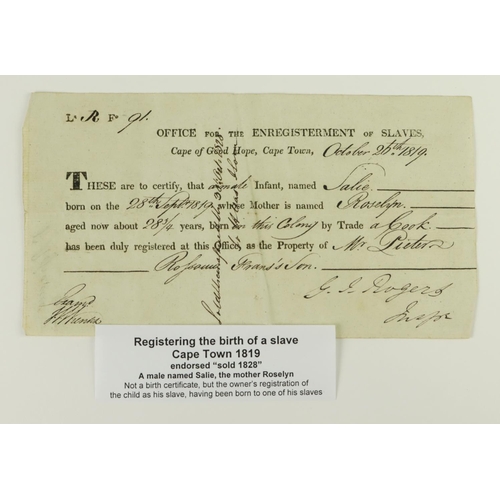 Lr R Fo 91.
OFFICE FOR THE ENREGISTERMENT OF SLAVES,
Cape of Good Hope, Cape Town, October 26th 1819.
THESE are to certify, that a male Infant, named Salie
born on the 28th Sept. 1819, whose Mother is named Roselyn.
aged now about 28 years, born in this Colony by Trade a Cook
has been duly registered at this Office, as the Property of Mr.
Son.
G. J. Rogers
Inspr
Registering the birth of a slave
Cape Town 1819
endorsed “sold 1828”
A male named Salie, the mother Roselyn
Not a birth certificate, but the owner's registration of
the child as his slave, having been born to one of his slaves